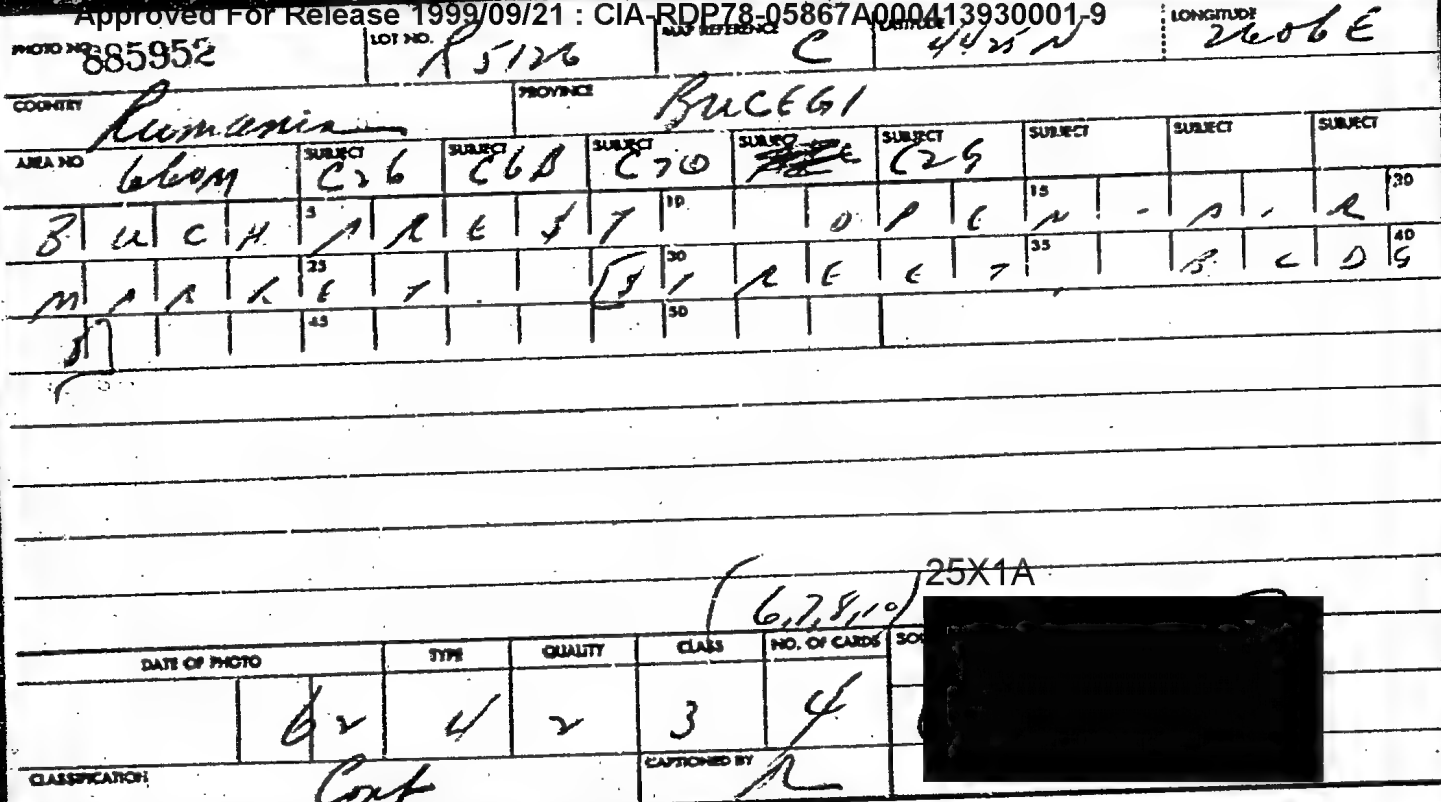 Approved For Release 1999/09/21 : CIA-RDP78-05867A000413930001-9
PHOTO NO. 885952 LOT NO. R 5126 MAP REFERENCE C LATITUDE 44 25 N LONGITUDE 2606 E
COUNTRY Rumania PROVINCE BUCEGI
AREA NO 660M SUBJECT C26 SUBJECT C6B SUBJECT C70 SUBJECT SUBJECT C25 SUBJECT SUBJECT SUBJECT
BUCH 5 AREST 10 OPE 15 N-AIR 20
MARK 25 ET [S 30 TREET 35 BLD 40 G
S] 45 50
(6,7,8,10) 25X1A
DATE OF PHOTO TYPE QUALITY CLASS NO. OF CARDS
62 4 2 3 4
CLASSIFICATION Conf CAPTIONED BY